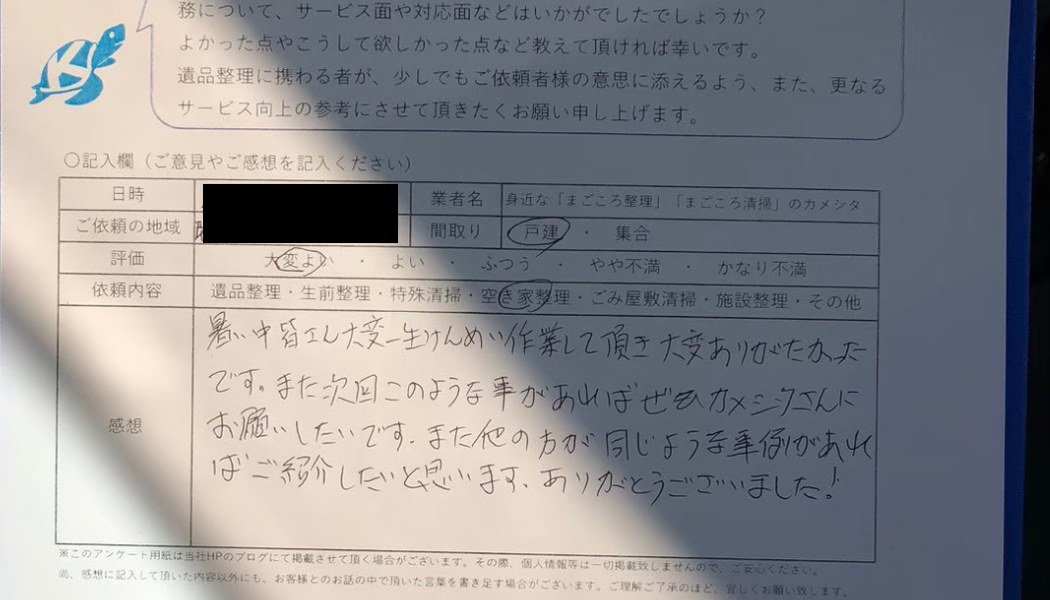 務について、サービス面や対応面などはいかがでしたでしょうか？
よかった点やこうして欲しかった点など教えて頂ければ幸いです。
遺品整理に携わる者が、少しでもご依頼者様の意思に添えるよう、また、更なる
サービス向上の参考にさせて頂きたくお願い申し上げます。
〇記入欄（ご意見やご感想を記入ください）
日時 業者名 身近な「まごころ整理」「まごころ清掃」のカメシタ
ご依頼の地域 間取り 戸建 ・ 集合
評価 大変よい ・ よい ・ ふつう ・ やや不満 ・ かなり不満
依頼内容 遺品整理・生前整理・特殊清掃・空き家整理・ごみ屋敷清掃・施設整理・その他
感想
暑い中皆さん大変一生けんめい作業して頂き大変ありがたかった
です。また次回このような事があればぜひカメシタさんに
お願いしたいです。また他の方が同じような事例があれ
ばご紹介したいと思います、ありがとうございました!
※このアンケート用紙は当社HPのブログにて掲載させて頂く場合がございます。その際、個人情報等は一切掲載致しませんので、ご安心ください。
尚、感想に記入して頂いた内容以外にも、お客様とのお話の中で頂いた言葉を書き足す場合がございます。ご理解ご了承のほど、宜しくお願い致します。